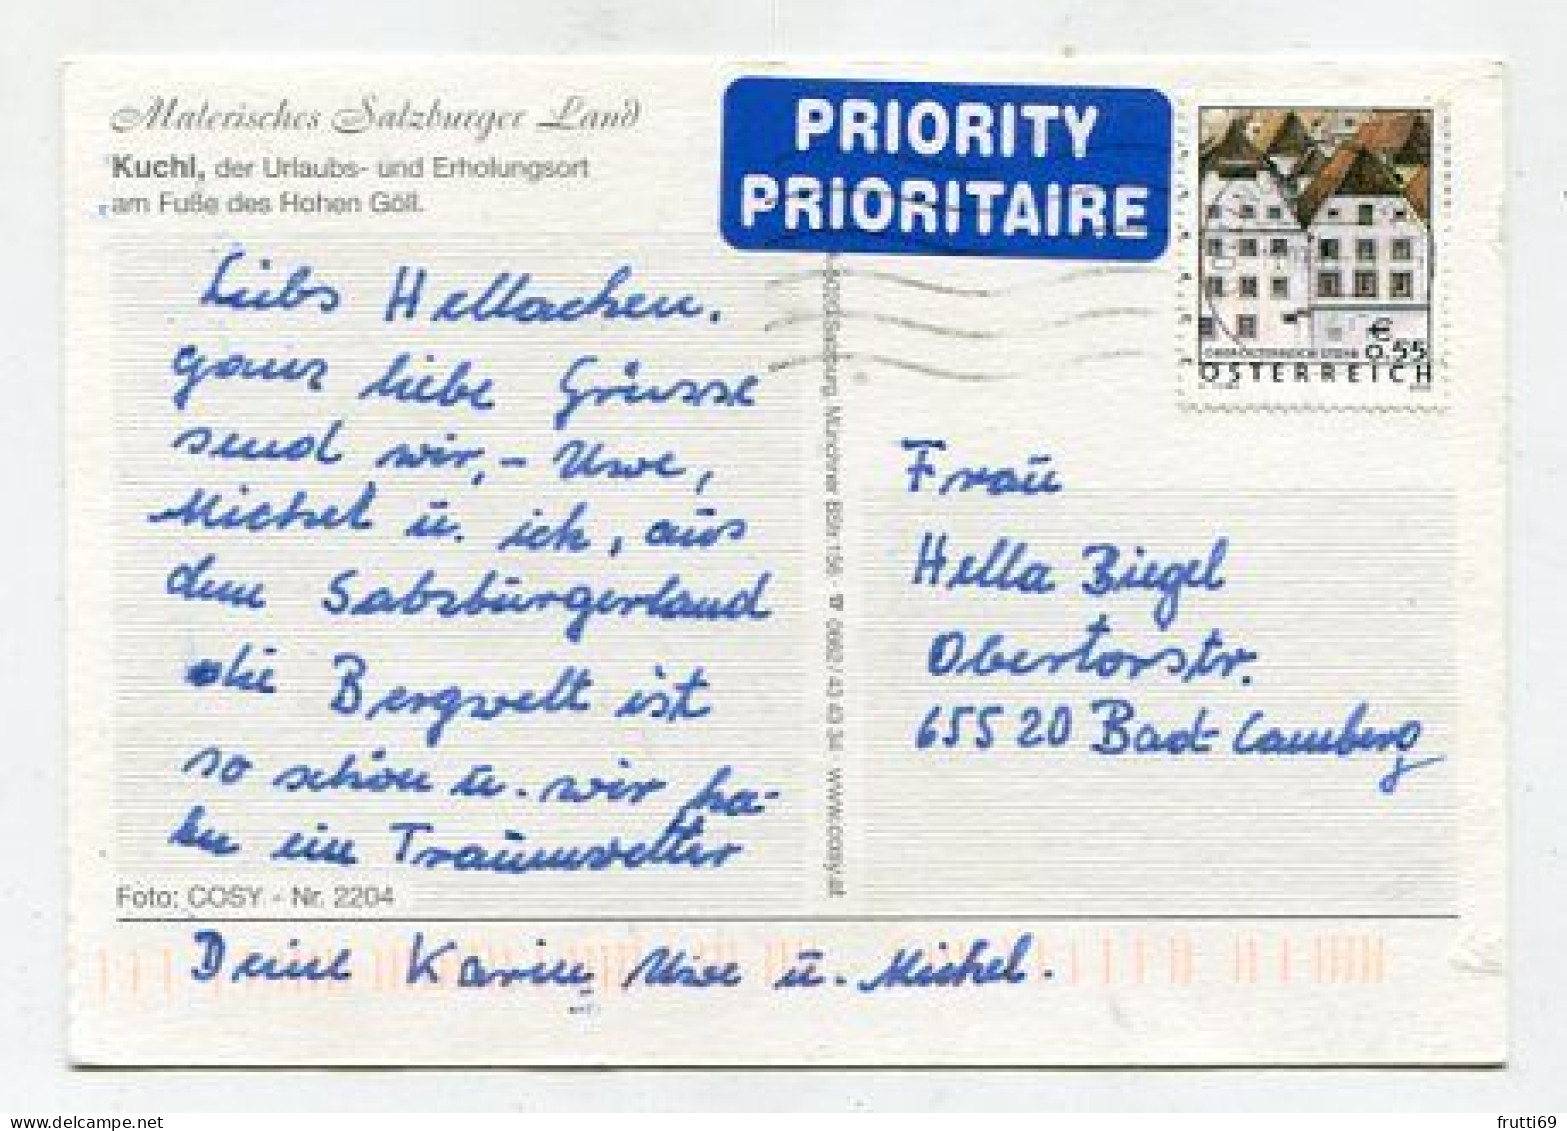 Malerisches Salzburger Land
Kuchl, der Urlaubs- und Erholungsort
am Fuße des Hohen Göll.
PRIORITY
PRIORITAIRE
€
0.55
ÖSTERREICH
Liebs Hellachen.
ganz liebe Grüsse
send wir, - Uwe,
Michel u. ich, aus
dem Salzburgerland
die Bergwelt ist
so schön u. wir ha-
ben ein Traumwetter
Foto: COSY - Nr. 2204
Deine Karin, Uwe u. Michel.
5020 Salzburg, Münchner BStr. 156 ☎ 0662 / 43 43 34 www.cosy.at
Frau
Hella Biegel
Obertorstr.
65520 Bad-Camberg
delcampe.net
frutti69